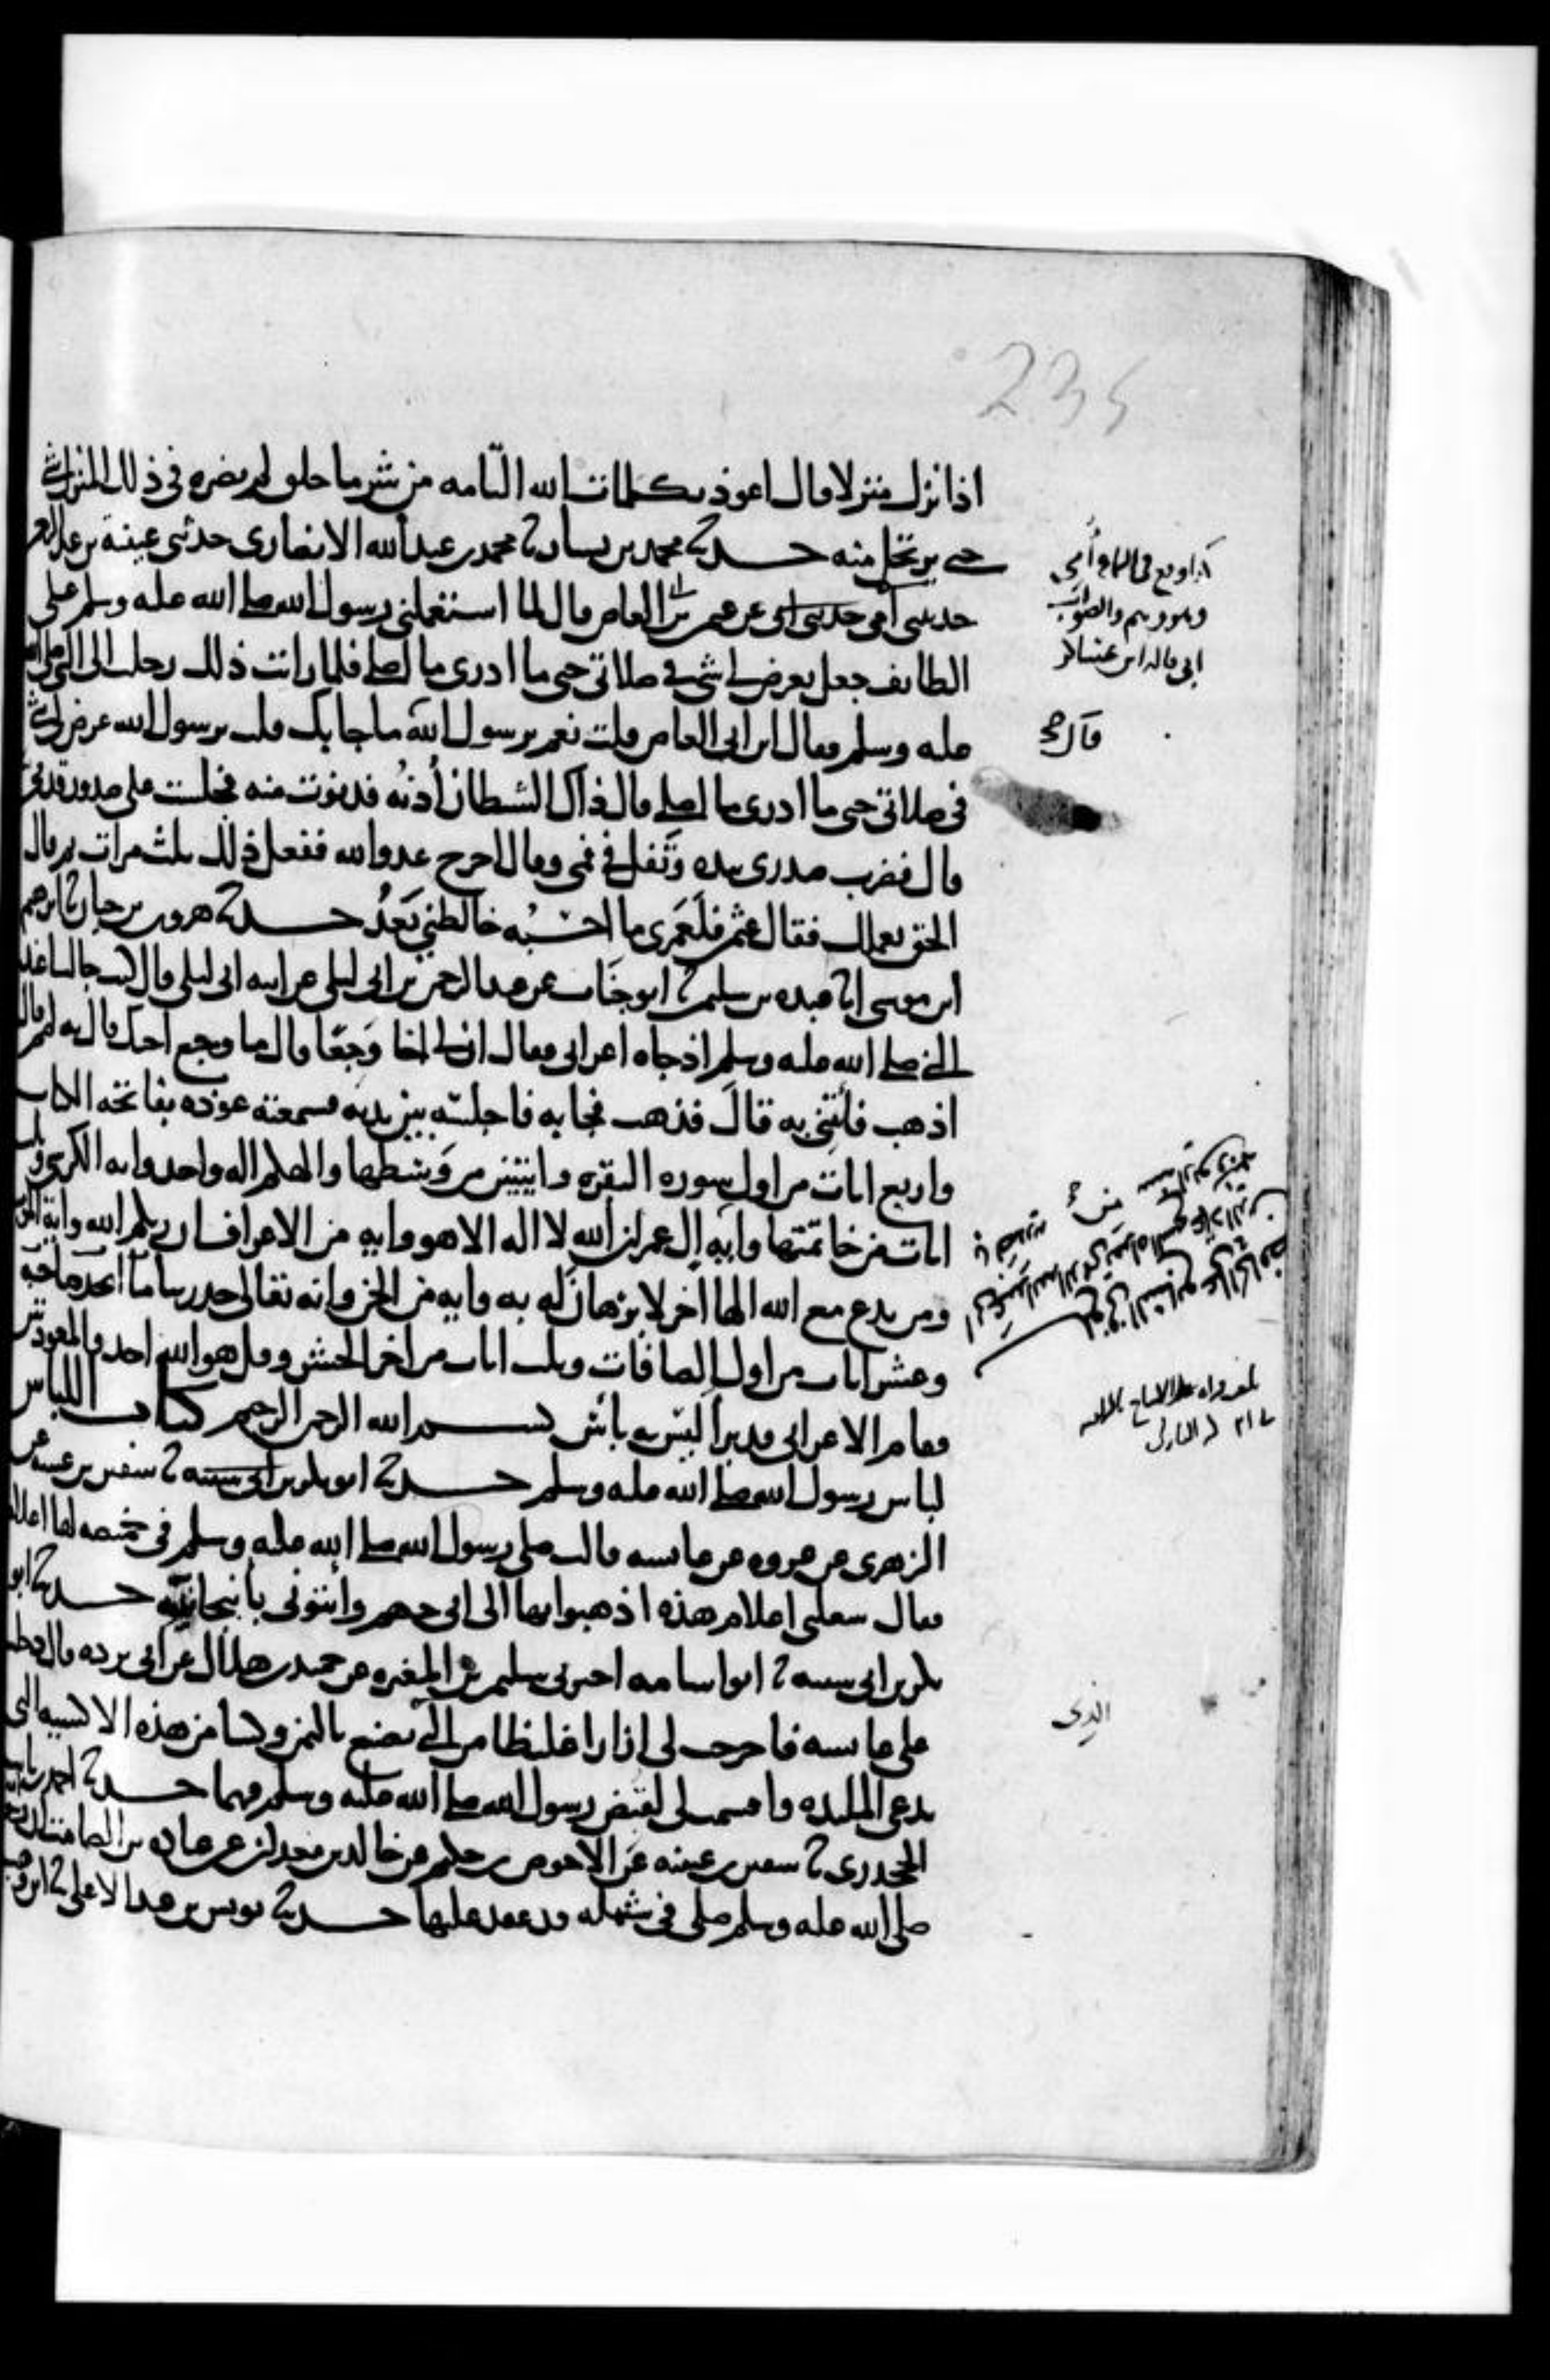 235
اذا نزل منزلا قال اعوذ بكلمات الله التامه من شر ما خلق لم يضره في ذلك المنزل شي
حتى يرتحل منه حدثنا محمد بن بشار نا محمد بن عبدالله الانصاري حدثني عيينة بن عبد الرحمن
حدثني امي حدثني ابي عن عثمن بن ابي العاص قال لما استعملني رسول الله صلى الله عليه وسلم على
الطائف جعل يعرض لي شي في صلاتي حتى ما ادري ما اصلي فلما رايت ذلك رحلت الى النبي صلى الله
عليه وسلم فقال ابن ابي العاص قلت نعم يرسول الله ما جا بك قلت يرسول الله عرض لي شي
في صلاتي حتى ما ادري ما اصلي قال ذاك الشيطان أدنه فدنوت منه فجلست على صدور قدمي
قال فضرب صدري بيده وتفل في فمي وقال اخرج عدو الله ففعل ذلك ثلث مرات ثم قال
الحق بعملك فقال عثمن فلعمري ما احسبه خالطني بعد حدثنا هرون بن حيان نا ابرهيم
ابن موسى انا عبده بن سليمن نا ابو جناب عن عبد الرحمن بن ابي ليلى عن ابيه ابي ليلى قال كنت جالسا عند
النبي صلى الله عليه وسلم اذ جاه اعرابي فقال ان لي اخا وجعا قال ما وجع اخيك قال به لمم قال
اذهب فأتني به قال فذهب فجا به فاجلسه بين يديه فسمعته عوذه بفاتحة الكتاب
واربع ايات من اول سوره البقره وايتين من وسطها والهكم اله واحد وايه الكرسي وثلث
ايات من خاتمتها وايه من ال عمران شهد الله انه لا اله الا هو وايه من الاعراف ان ربكم الله وايه من المؤمنين
ومن يدع مع الله الها اخر لا برهان له به وايه من الجن وانه تعالى جد ربنا ما اتخذ صاحبه
وعشر ايات من اول الصافات وثلث ايات من اخر الحشر وقل هو الله احد والمعوذتين
فقام الاعرابي قد برأ ليس به بأس بسم الله الرحمن الرحيم كتاب اللباس
لباس رسول الله صلى الله عليه وسلم حدثنا ابو بكر بن ابي شيبه نا سفين بن عيينه عن
الزهري عن عروه عن عائشه قالت صلى رسول الله صلى الله عليه وسلم في خميصه لها اعلام
فقال شغلني اعلام هذه اذهبوا بها الى ابي جهم وائتوني بأنبجانيته حدثنا ابو
بكر بن ابي شيبه نا ابو اسامه اخبرني سليمن بن المغيره عن حميد بن هلال عن ابي برده قال دخلت
على عائشه فاخرجت لي ازارا غليظا من التي تصنع باليمن وكسا من هذه الاكسيه التي
تدعى الملبده واقسمت لي لقبض رسول الله صلى الله عليه وسلم فيهما حدثنا احمد بن ثابت
الجحدري نا سفين بن عيينه عن الاحوص بن حكيم عن خالد بن معدان عن عباده بن الصامت ان رسول الله
صلى الله عليه وسلم صلى في شمله قد عقد عليها حدثنا يونس بن عبد الاعلى نا ابن وهب
كذا وقع في السماع أمي
وهو وهم والصواب
ابي قاله ابن عساكر
قال
الذي